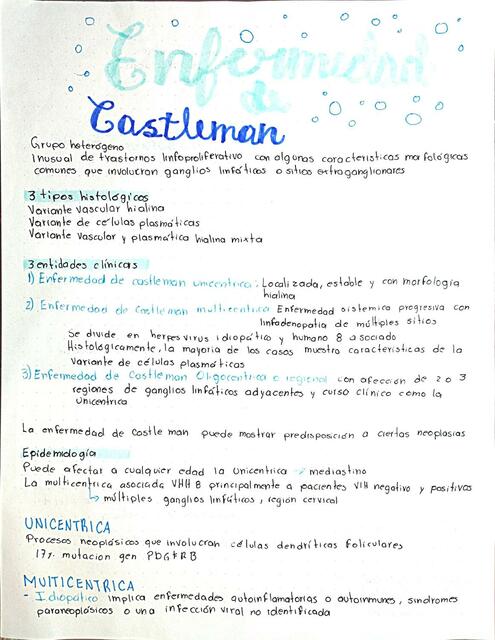 Enfermedad
de
Castleman
Grupo heterógeno
Inusual de trastornos linfoproliferativo con algunas características morfológicas
comunes que involucran ganglios linfáticos o sitios extraganglionares
3 tipos histológicos
Variante vascular hialina
Variante de células plasmáticas
Variante vascular y plasmática hialina mixta
3 entidades clínicas
1) Enfermedad de castleman unicentrica: Localizada, estable y con morfología
hialina
2) Enfermedad de Castleman multicentrica Enfermedad sistemica progresiva con
linfadenopatia de múltiples sitios
Se divide en herpesvirus idiopático y humano 8 asociado
Histológicamente, la mayoría de los casos muestra características de la
variante de células plasmáticas
3) Enfermedad de Castleman Oligocentrica o regional con afección de 2 o 3
regiones de ganglios linfáticos adyacentes y curso clínico como la
Unicentrica
La enfermedad de Castleman puede mostrar predisposición a ciertas neoplasias
Epidemiología
Puede afectar a cualquier edad la Unicentrica → mediastino
La multicentrica asociada VHH 8 principalmente a pacientes VIH negativo y positivos
↳ múltiples ganglios linfáticos, región cervical
UNICENTRICA
Procesos neoplásicos que involucran células dendríticas foliculares
17% mutacion gen PDGFRB
MULTICENTRICA
- Idiopático implica enfermedades autoinflamatorias o autoinmunes, sindromes
paraneoplásicos o una infección viral no identificada